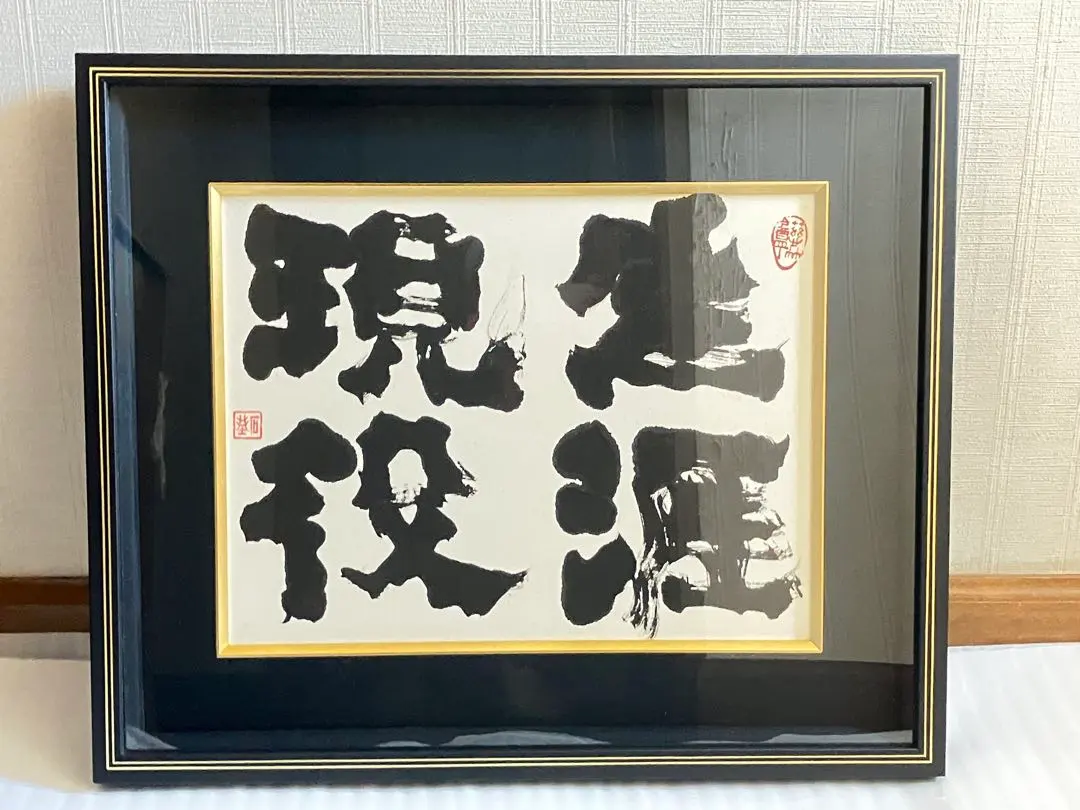 生涯
現役